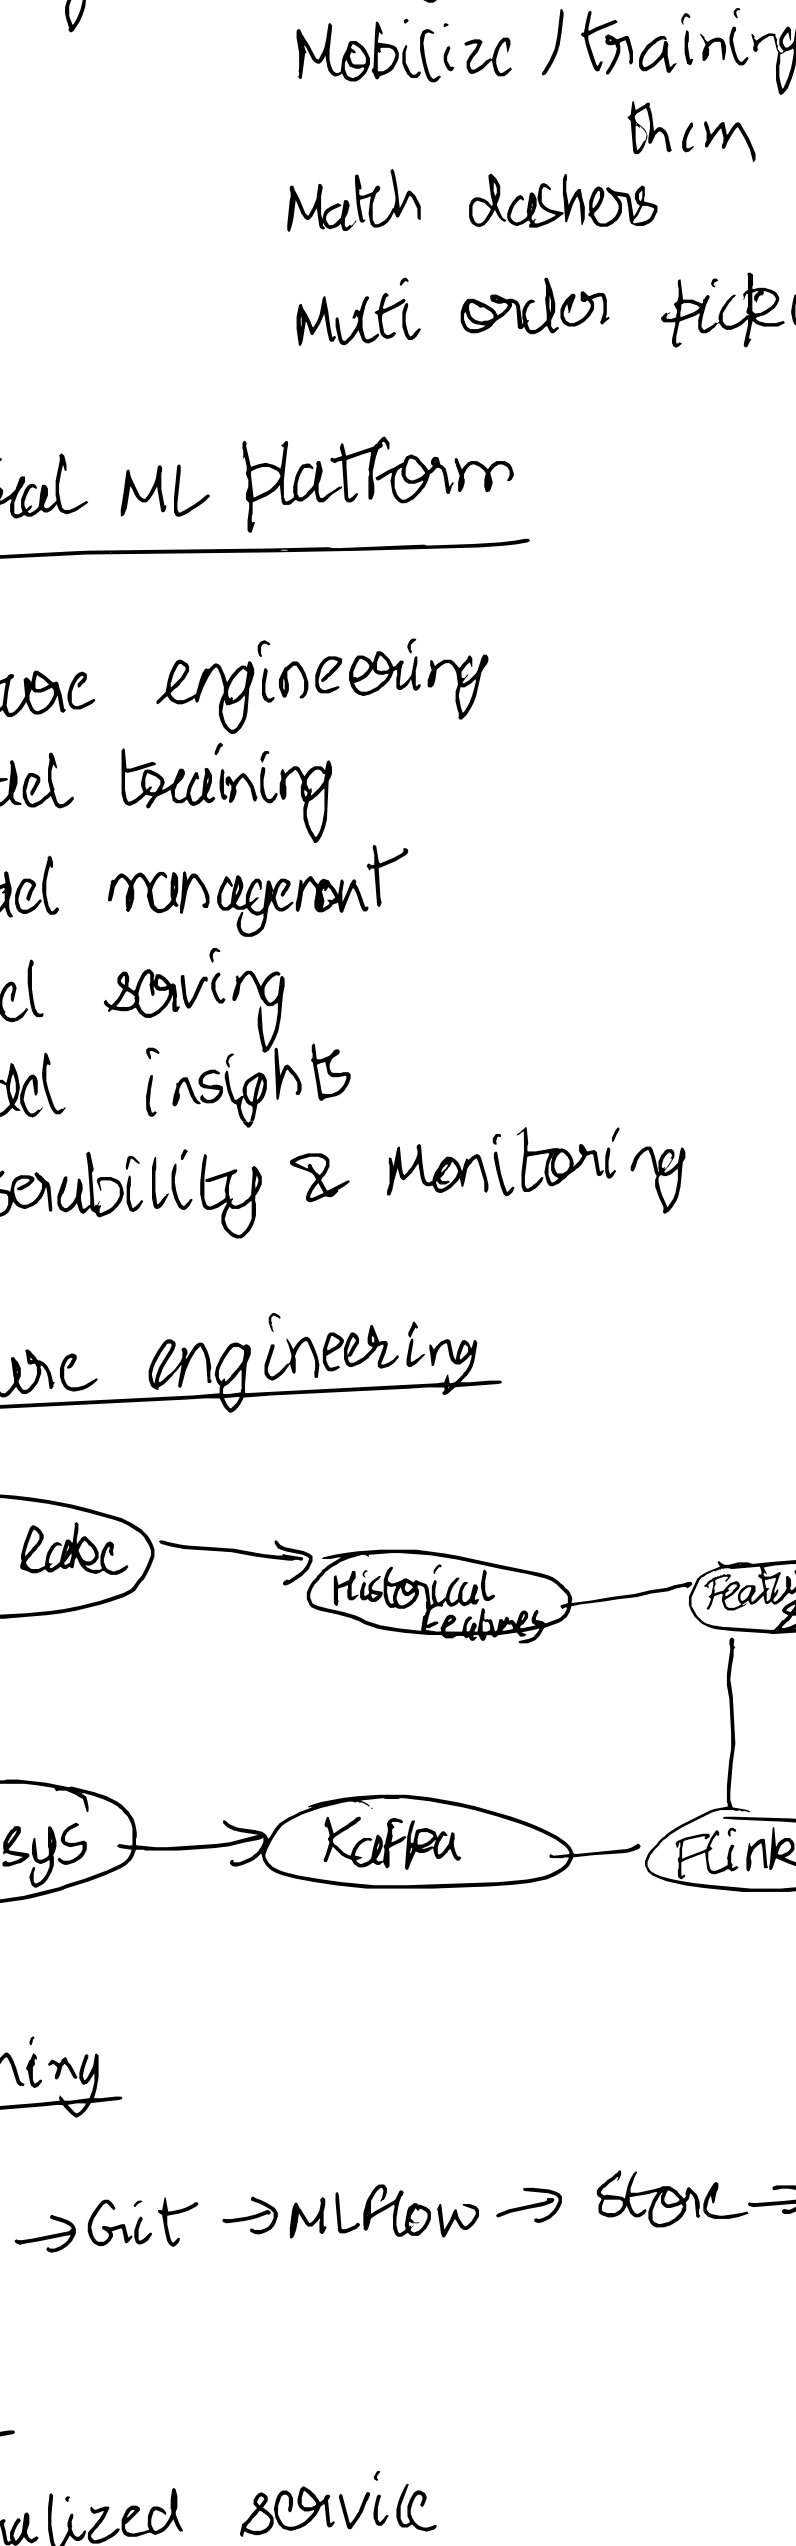 Mobilize / training
them
Match dashers
Multi order
ML platform
engineering
training
management
serving
insights
& Monitoring
engineering
Lake
Historical
Features
sys
Kafka
Flink
→ Git → MLFlow → Store →
service